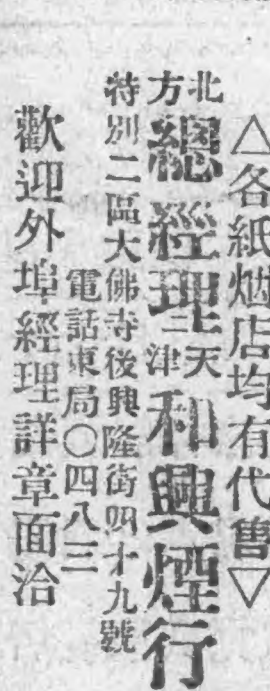 △各紙烟店均有代售▽
北方總經理天津和興煙行
特別二區大佛寺後興隆街四十九號
電話東局〇四八三
歡迎外埠經理詳章面洽